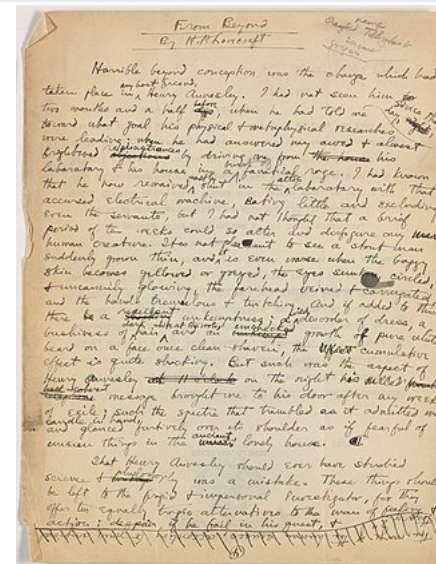 From Beyond
By H.P. Lovecraft
Horrible beyond conception was the change which had
taken place in my best friend, Henry Annesley. I had not seen him since
two months and a half before, when he had told me
toward what goal his physical & metaphysical researches
were leading; when he had answered my awed & almost
frightened remonstrances by driving me from his
laboratory & his house in a burst of fanatical rage. I had known
that he now remained mostly shut in the attic laboratory with that
accursed electrical machine, eating little and excluding
even the servants, but I had not thought that a brief
period of ten weeks could so alter and disfigure any
human creature. It is not pleasant to see a stout man
suddenly grown thin, and is even worse when the baggy
skin becomes yellowed or greyed, the eyes sunken, circled,
& uncannily glowing, the forehead veined & corrugated,
and the hands tremulous & twitching. And if added to this
there be a repellent unkemptness; a wild disorder of dress, a
bushiness of dark hair white at the roots, and an unchecked growth of pure white
beard on a face once clean-shaven, the cumulative
effect is quite shocking. But such was the aspect of
Henry Annesley on the night his
message brought me to his door after my weeks
of exile; such the spectre that trembled as it admitted me,
candle in hand, and glanced furtively over its shoulder as if fearful of
unseen things in the ancient, lonely house.
That Henry Annesley should ever have studied
science & philosophy was a mistake. These things should
be left to the frigid & impersonal investigator, for they
offer two equally tragic alternatives to the man of feeling &
action; despair, if he fail in his quest, &